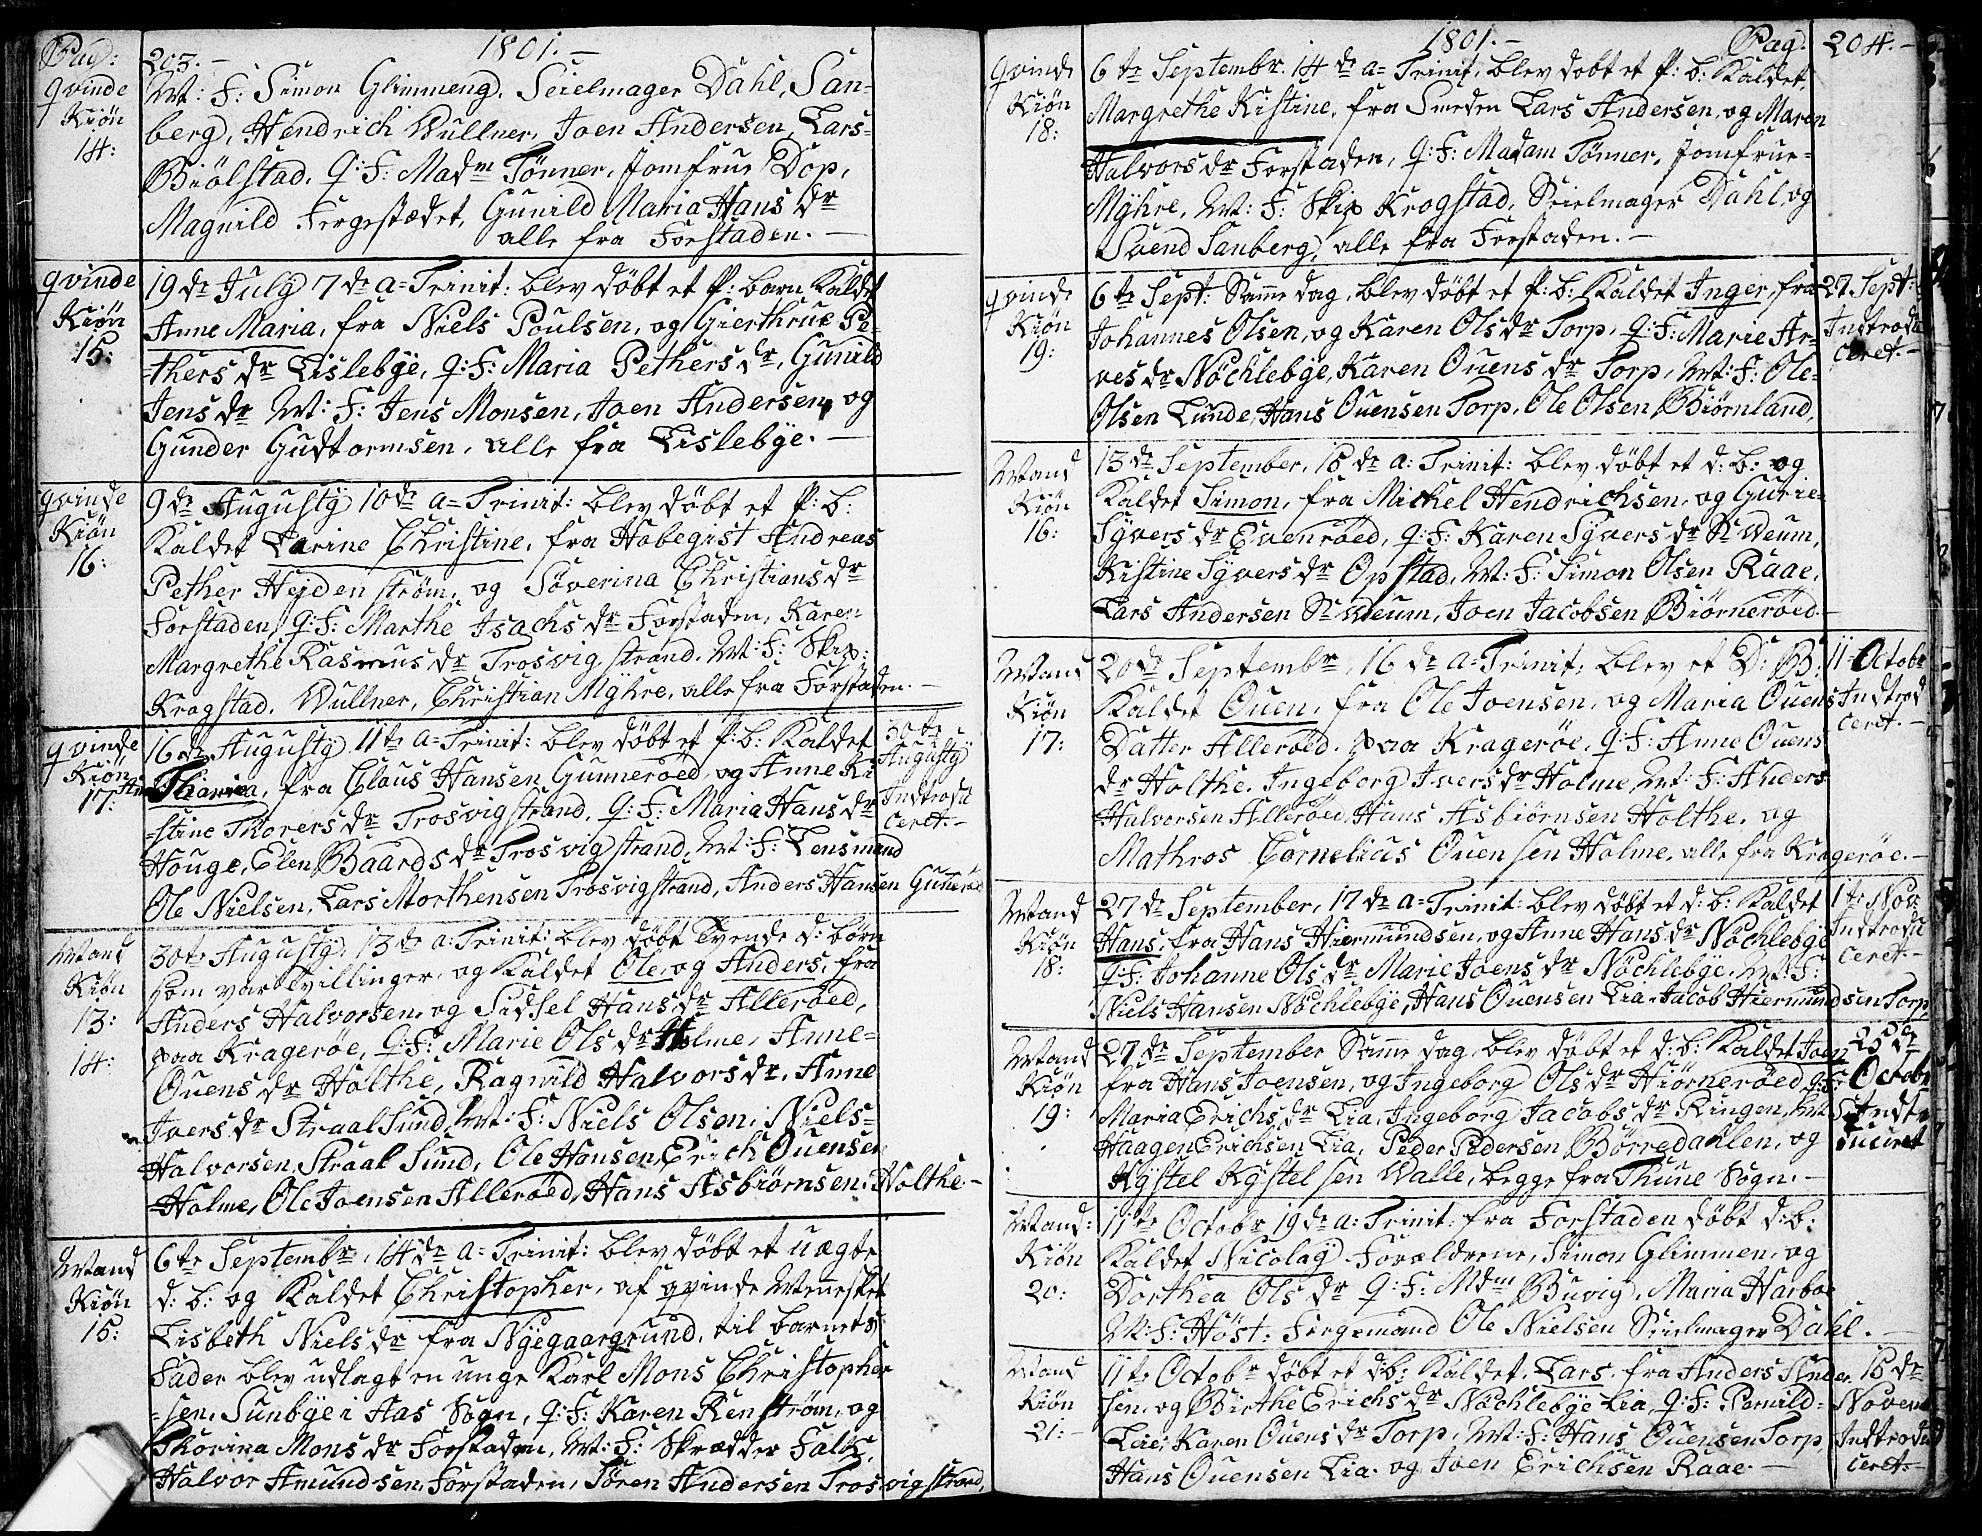 Pag: 203. — 1801. —
qvinde Kiøn 14:
M: F: Simon Glimmeng, Seielmager Dahl, San-
berg, Hendrich Wullner, Joen Andersen, Lars-
Biölstad, Q: F: Madm Tönner, Jomfrue Dop,
Magnild Fergestædet, Gunild Maria Hans dr
alle fra Forstaden. —
qvinde Kiøn 15:
19de July 7de a= Trinit: blev döbt et P: barn Kaldet
Anne Maria, fra Niels Poulsen, og Gierthrue Pe-
-thers dr Lislebye, Q: F: Maria Pethers dr, Gunild
Jens dr M: F: Jens Monsen, Joen Andersen, og
Gunder Gudtormsen, alle fra Lislebye. —
qvinde Kiøn 16:
9de Augusty 10de a= Trinit: blev döbt et P: b:
Kaldet Larine Christine, fra Habegist Andreas
Pether Hejdenström, og Söverina Christians dr
Forstaden, Q: F: Marthe Isachs dr Forstaden, Karen
Margrethe Rasmus dr Trosvigstrand. M: F: Skip:
Krogstad, Wullner, Christian Myhre, alle fra Forstaden. —
qvinde Kiøn 17:
16de Augusty 11te a= Trinit: blev döbt et P: b: Kaldet
fra Claus Hansen Gunneröed, og Anne Ki
-stine Thorers dr Trosvigstrand, Q: F: Maria Hans dr
Houge, Elen Baards dr Trosvigstrand, M: F: Lensmand
Ole Nielsen, Lars Morthensen Trosvigstrand, Anders Hansen Guneröd
30te Augusty Indtrodu ceret. —
Mand Kiøn 13: 14:
30te Augusty, 13de a: Trinit: blev döbt Tvende d: börn
som var Tvillinger, og Kaldet Ole, og Anders, fra
Anders Halvorsen, og Sidsel Hans dr Alleröed,
paa Krageröe, Q: F: Marie Ols dr Holme, Anne-
Ouens dr Holthe, Ragnild Halvors dr, Anne
Ivers dr Straalsund, M: F: Niels Olsen, Niels-
Halvorsen, Straal Sund, Ole Hansen, Erich Ouensen
Holme, Ole Joensen Alleröed, Hans Asbiörnsen Holthe —
Mand Kiøn 15:
6te Septembr, 14de a= Trinit: blev döbt et uægte
d: b: og Kaldet Christopher, af qvinde Mennesket
Lisbeth Niels dr fra Nyegaargrund, til barnets
Fader blev udlagt en unge Karl Mons Christopher
-sen, Sunbye i Aas Sogn, Q: F: Karen Renström, og
Thorina Mons dr Forstaden, M: F: Skrædder Falk,
Halvor Amundsen, Forstaden, Sören Andersen Trosvigstrand,
1801. — Pag: 204. —
qvinde Kiøn 18:
6te Septembr. 14de a= Trinit: blev döbt et P: b: Kaldet,
Margrethe Kistine, fra Smeden Lars Andersen, og Maren
Halvors dr Forstaden, Q: F: Madam Tönner, Jomfrue-
Myhre, M: F: Skip Krogstad, Seielmager Dahl, og
Svend Sanberg, alle fra Forstaden. —
qvinde Kiøn 19:
6te Sept: Samme dag, blev döbt et P: b: Kaldet Inger, fra
Johannes Olsen, og Karen Ols dr Torp, Q: F: Marie Ar-
ves dr Nöchlebye, Karen Ouens dr Torp, M: F: Ole-
Olsen Lunde, Hans Ouensen Torp, Ole Olsen Biørnland,
27 Sept: Indtrodu ceret. —
Mand Kiøn 16:
13de September, 15de a: Trinit: blev döbt et d: b: og
Kaldet Simon, fra Michel Hendrichsen, og Gurie
Syvers dr Evenröed, Q: F: Karen Syvers dr St Weum,
Kistine Syvers dr Opstad, M: F: Simon Olsen Raae,
Lars Andersen St Weum, Joen Jacobsen Biörneröed —
Mand Kiøn 17:
20de Septembr, 16de a= Trinit, blev et D: B:
Kaldet Ouen, fra Ole Joensen, og Maria Ouens
Datter Alleröed, paa Krageröe, Q: F: Anne Ouens
dr Holthe, Ingeborg Ivers dr Holme, M: F: Anders
Halvorsen Alleröed, Hans Asbiörnsen Holthe, og
Mathros Cornelius Ouensen Holme, alle fra Krageröe. —
11 Octobr Indtrod ceret. —
Mand Kiøn 18:
27de September, 17de a= Trinit: blev döbt et d: b: Kaldet
Hans, fra Hans Hiermundsen, og Anne Hans dr Nöchlebye
Q: F: Johanne Ols dr, Marie Joens dr Nöchlebye, M: F:
Niels Hansen Nöchlebye, Hans Ouensen Lia, Jacob Hiermundsen Torp,
1te Nov: Indtrodu ceret. —
Mand Kiøn 19:
27de September Samme dag, blev döbt et d: b: Kaldet Joen
fra Hans Joensen, og Ingeborg Ols dr Hiörneröed, Q: F:
Maria Erichs dr Lia, Ingeborg Jacobs dr Ringen, M:
Haagen Erichsen Lia, Peder Pedersen Börredahlen, og
Kystel Kystelsen Walle, begge fra Thune Sogn. —
25de Octobr Indtr duceret
Mand: Kiøn 20:
11te Octobr 19de a: Trinit: fra Forstaden döbt d: b:
Kaldet Nicolay Forældrene, Simon Glimmen, og
Dorthea Ols dr Q: F: Mdm Buvig, Maria Harboe
M: F: Höst: Fergemand Ole Nielsen Seielmager Dahl. —
Mand Kiøn 21: —
11te Octobr döbt et d: b: Kaldet, Lars, fra Anders Ander
sen, og Birthe Erichs dr Nöchlebye Lia, Q: F: Pernild-
Lie, Karen Ouens dr Torp, M: F: Hans Ouensen Torp
Hans Ouensen Lia, og Joen Erichsen Raae —
15de Novemb Indtrodu ceret —